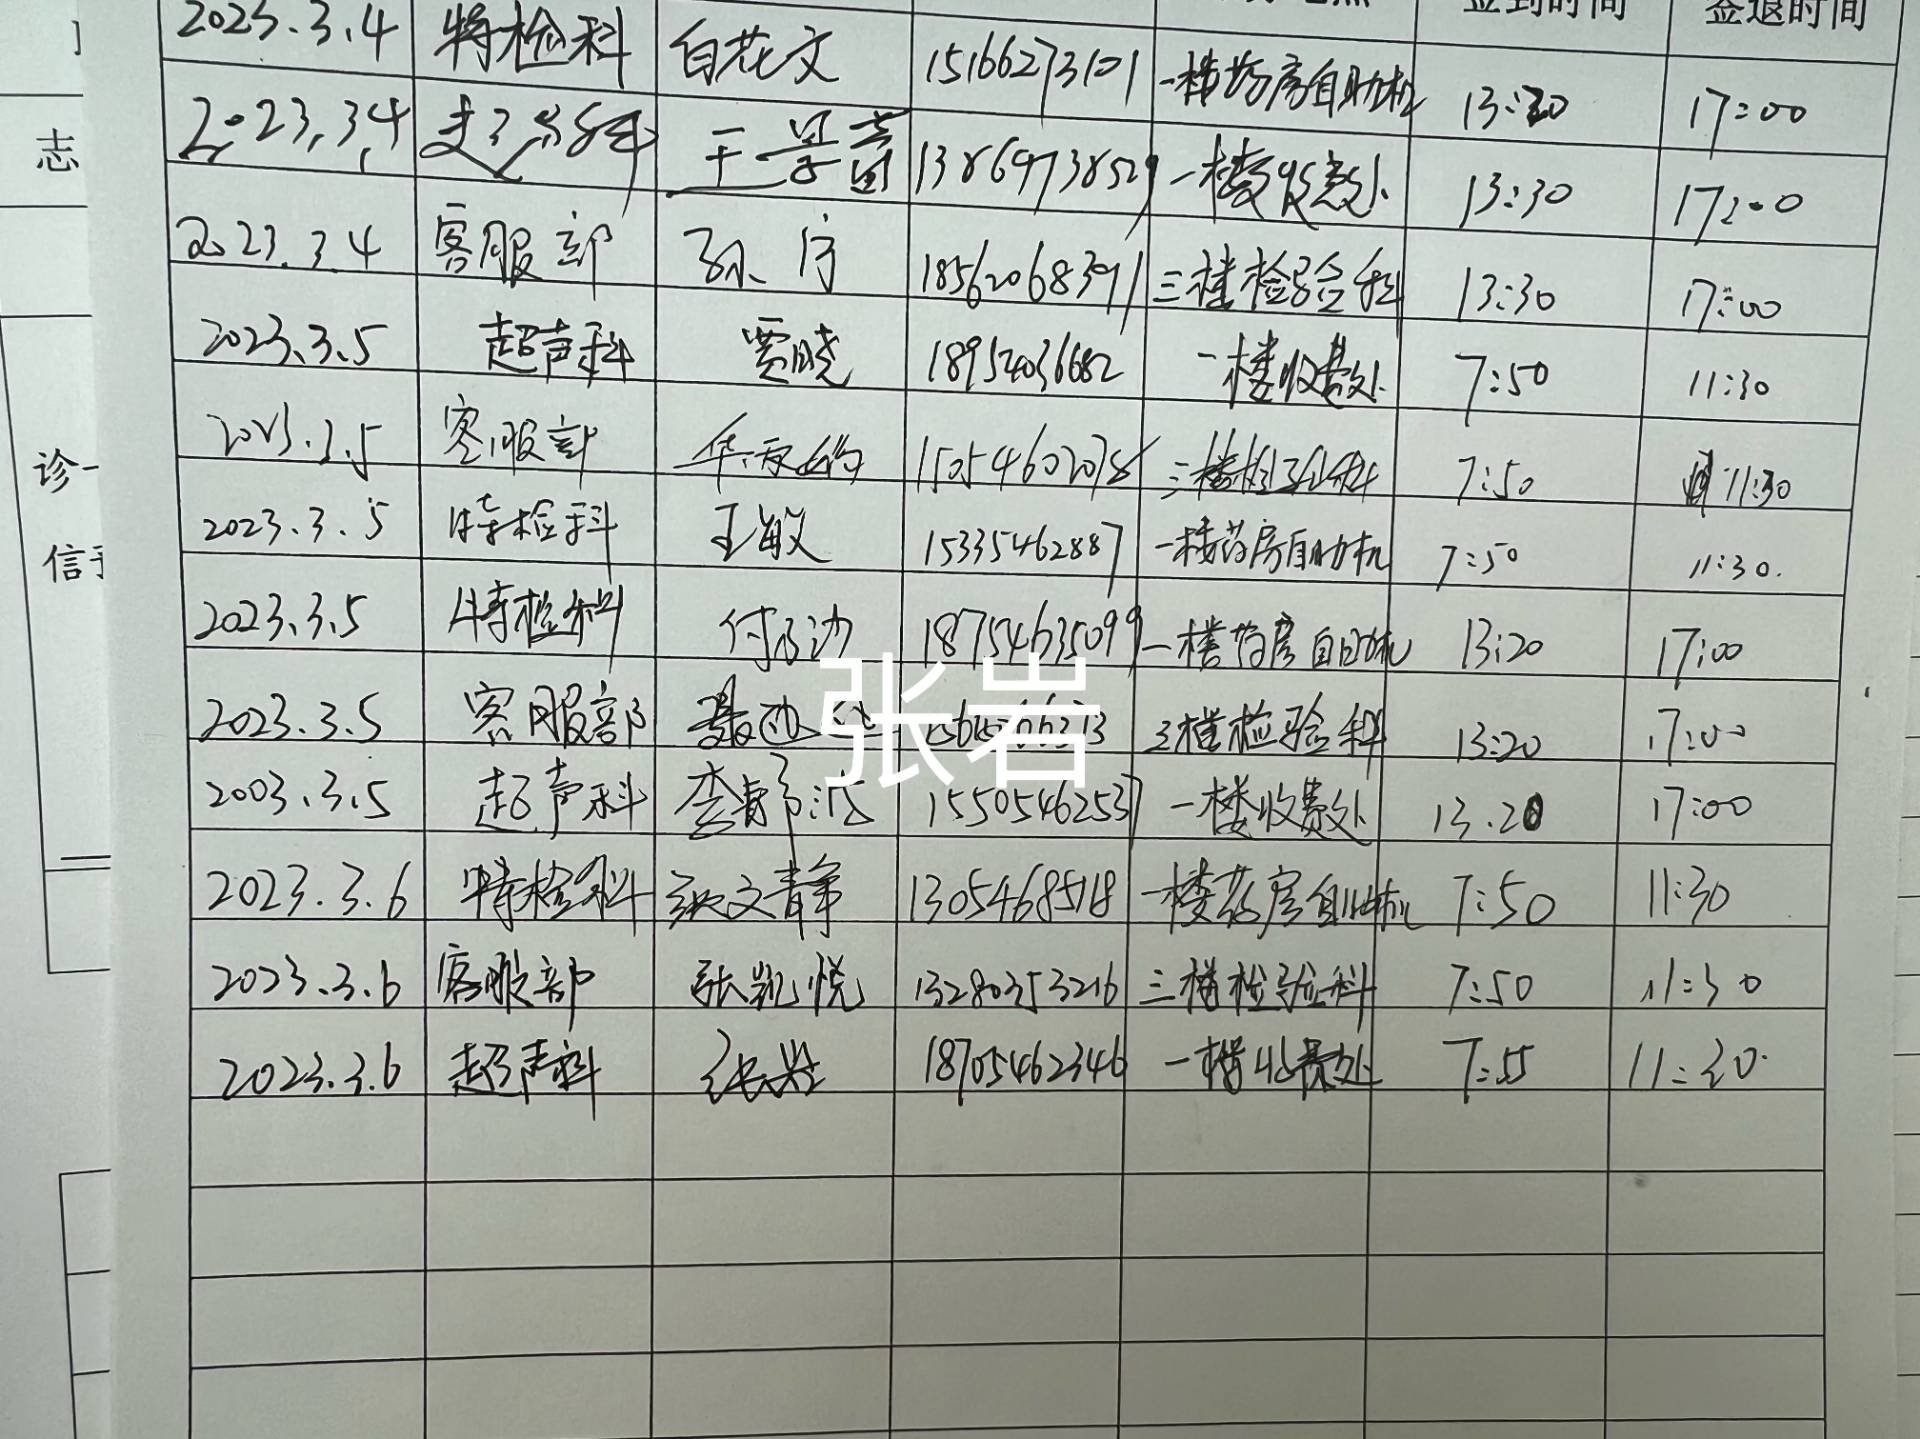 签到时间 签退时间
2023.3.4 特检科 白花文 15166273101 一楼药房自助机 13:30 17:00
2023.3.4 超声科 13869738529 一楼收费处 13:30 17:00
2023.3.4 客服部 孙 18562068391 三楼检验科 13:30 17:00
2023.3.5 超声科 贾晓 18954036682 一楼收费处 7:50 11:30
2023.3.5 客服部 15054602078 三楼检验科 7:50 11:30
2023.3.5 特检科 王敏 15335462887 一楼药房自助机 7:50 11:30.
2023.3.5 特检科 18754635099 一楼药房自助机 13:20 17:00
张岩
2023.3.5 客服部 三楼检验科 13:20 17:00
2003.3.5 超声科 15505462537 一楼收费处 13.20 17:00
2023.3.6 特检科 张文静 1305468518 一楼药房自助机 7:50 11:30
2023.3.6 客服部 张凯悦 13280353216 三楼检验科 7:50 11:30
2023.3.6 超声科 张岩 18705462346 一楼收费处 7:55 11:30
志
诊一
信